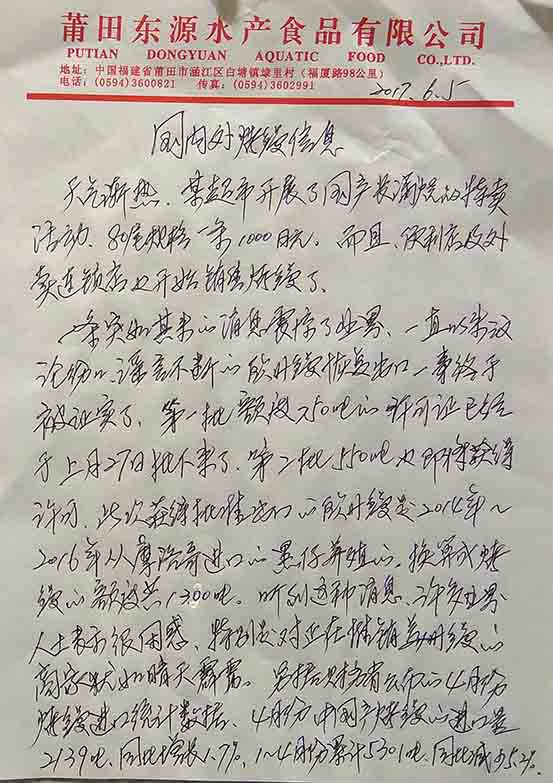 莆田东源水产食品有限公司
PUTIAN DONGYUAN AQUATIC FOOD CO.,LTD.
地址：中国福建省莆田市涵江区白塘镇埭里村（福厦路98公里）
电话：(0594)3600821 传真：(0594)3602991
2017.6.5
国内外烤鳗信息
天气渐热，某超市开展了国产长蒲烧的特卖
活动，80尾规格一条1000日元。而且，便利店及外
卖连锁店也开始销售烤鳗了。
一条突如其来的消息震惊了业界，一直以来议
论纷纷、谣言不断的欧洲鳗恢复出口一事终于
被证实了，第一批额度750吨的许可证已经
于上月27日批下来了，第二批550吨也即将获得
许可，此次获得批准出口的欧洲鳗是2014年～
2016年从摩洛哥进口的黑仔养殖的，换算成烤
鳗的额度共1300吨。听到这种消息，许多业界
人士表示很困惑，特别是对正在推销美洲鳗的
商家犹如晴天霹雳。另据财务省公布的4月份
烤鳗进口统计数据，4月份中国产烤鳗的进口量
2139吨，同比增长1.7%，1～4月份累计5301吨，同比减少5.2%